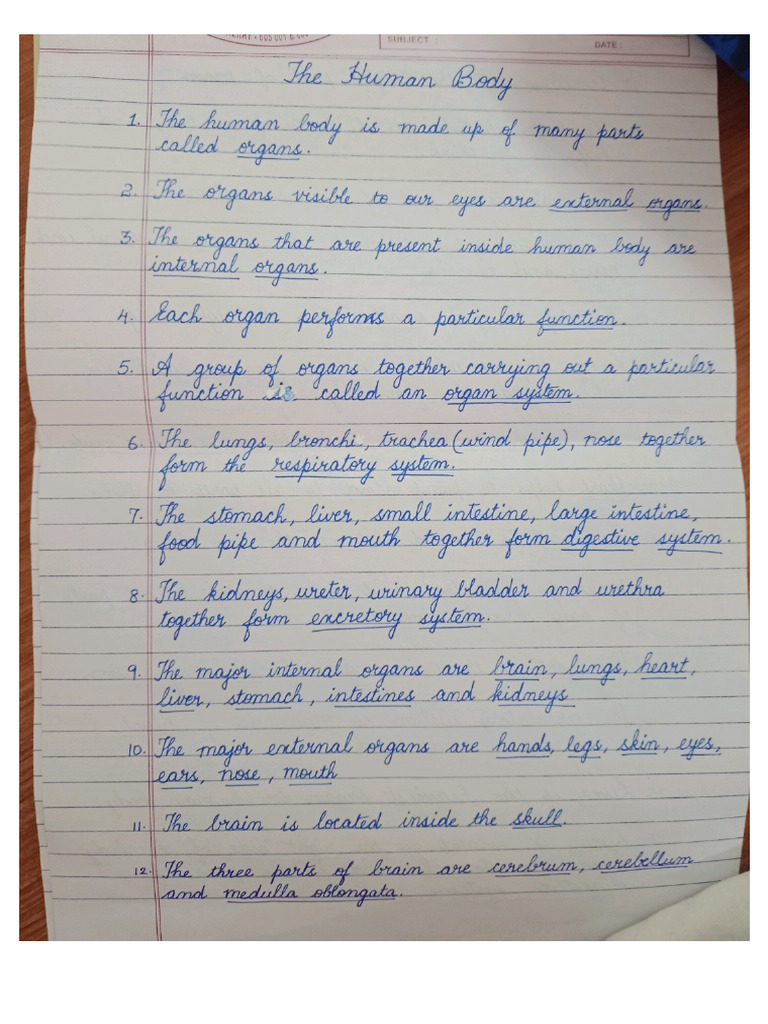 SUBJECT :
DATE :
The Human Body
1. The human body is made up of many parts
called organs.
2. The organs visible to our eyes are external organs.
3. The organs that are present inside human body are
internal organs.
4. Each organ performs a particular function.
5. A group of organs together carrying out a particular
function is called an organ system.
6. The lungs, bronchi, trachea (wind pipe), nose together
form the respiratory system.
7. The stomach, liver, small intestine, large intestine,
food pipe and mouth together form digestive system.
8. The kidneys, ureter, urinary bladder and urethra
together form excretory system.
9. The major internal organs are brain, lungs, heart,
liver, stomach, intestines and kidneys
10. The major external organs are hands, legs, skin, eyes,
ears, nose, mouth
11. The brain is located inside the skull.
12. The three parts of brain are cerebrum, cerebellum
and medulla oblongata.